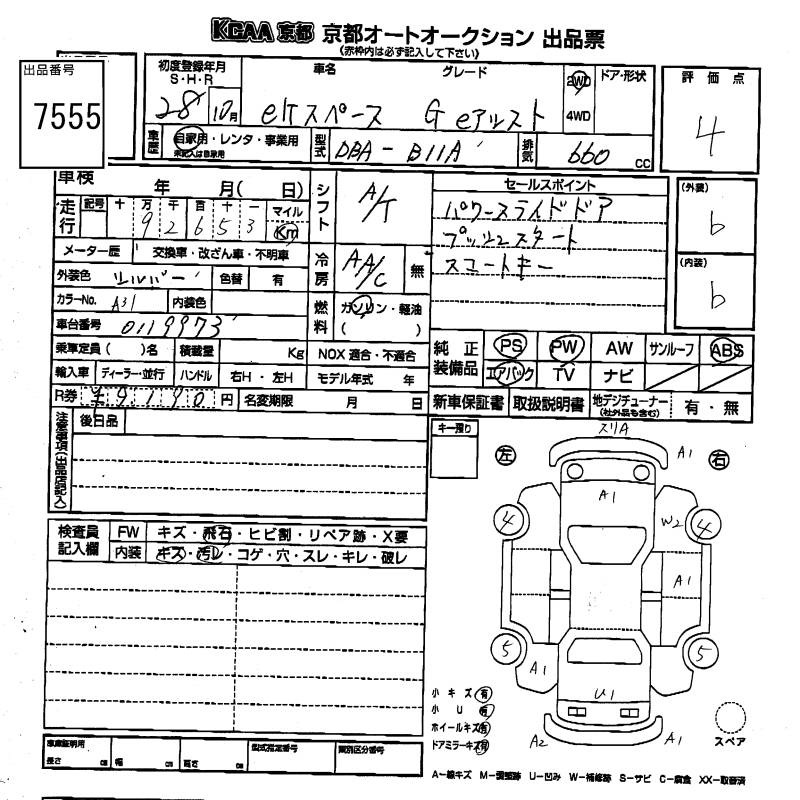 KCAA 京都 京都オートオークション 出品票
(赤枠内は必ず記入して下さい)
出品番号
7555
初度登録年月
S・H・R
28 10月
車名
グレード
eKスペース G eアシスト
2WD
4WD
ドア・形状
評価点
4
車歴
自家用・レンタ・事業用
未記入は自家用
型式
DBA-B11A
排気
660 CC
車検
年 月( 日)
走行
記号 十 万 千 百 十 一 マイル
9 2 6 5 3 Km
シフト
A/T
セールスポイント
パワースライドドア
プッシュスタート
スマートキー
(外装)
b
(内装)
b
メーター歴 交換車・改ざん車・不明車
外装色 シルバー 色替 有
カラーNo. A31 内装色
車台番号 0119973
冷房
AA/C
無
燃料
ガソリン・軽油
( )
乗車定員( )名 積載量 Kg NOX適合・不適合
輸入車 ディーラー・並行 ハンドル 右H・左H モデル年式 年
R券 ¥9190円 名変期限 月 日
純正装備品
PS PW AW サンルーフ ABS
エアバック TV ナビ
新車保証書 取扱説明書 地デジチューナー(社外品も含む) 有・無
注意事項(出品店記入)
後日品
キー預り
左
右
スリA
A1
A1
4
W2
4
A1
5
A1
5
U1
A2
A1
スペア
検査員記入欄
FW キズ・飛石・ヒビ割・リペア跡・X要
内装 キズ・汚レ・コゲ・穴・スレ・キレ・破レ
小キズ 有
小U 有
ホイールキズ 有
ドアミラーキズ 有
車庫証明用
長さ cm 幅 cm 高さ cm
型式指定番号
類別区分番号
A-線キズ M-調整跡 U-凹み W-補修跡 S-サビ C-腐食 XX-取替済